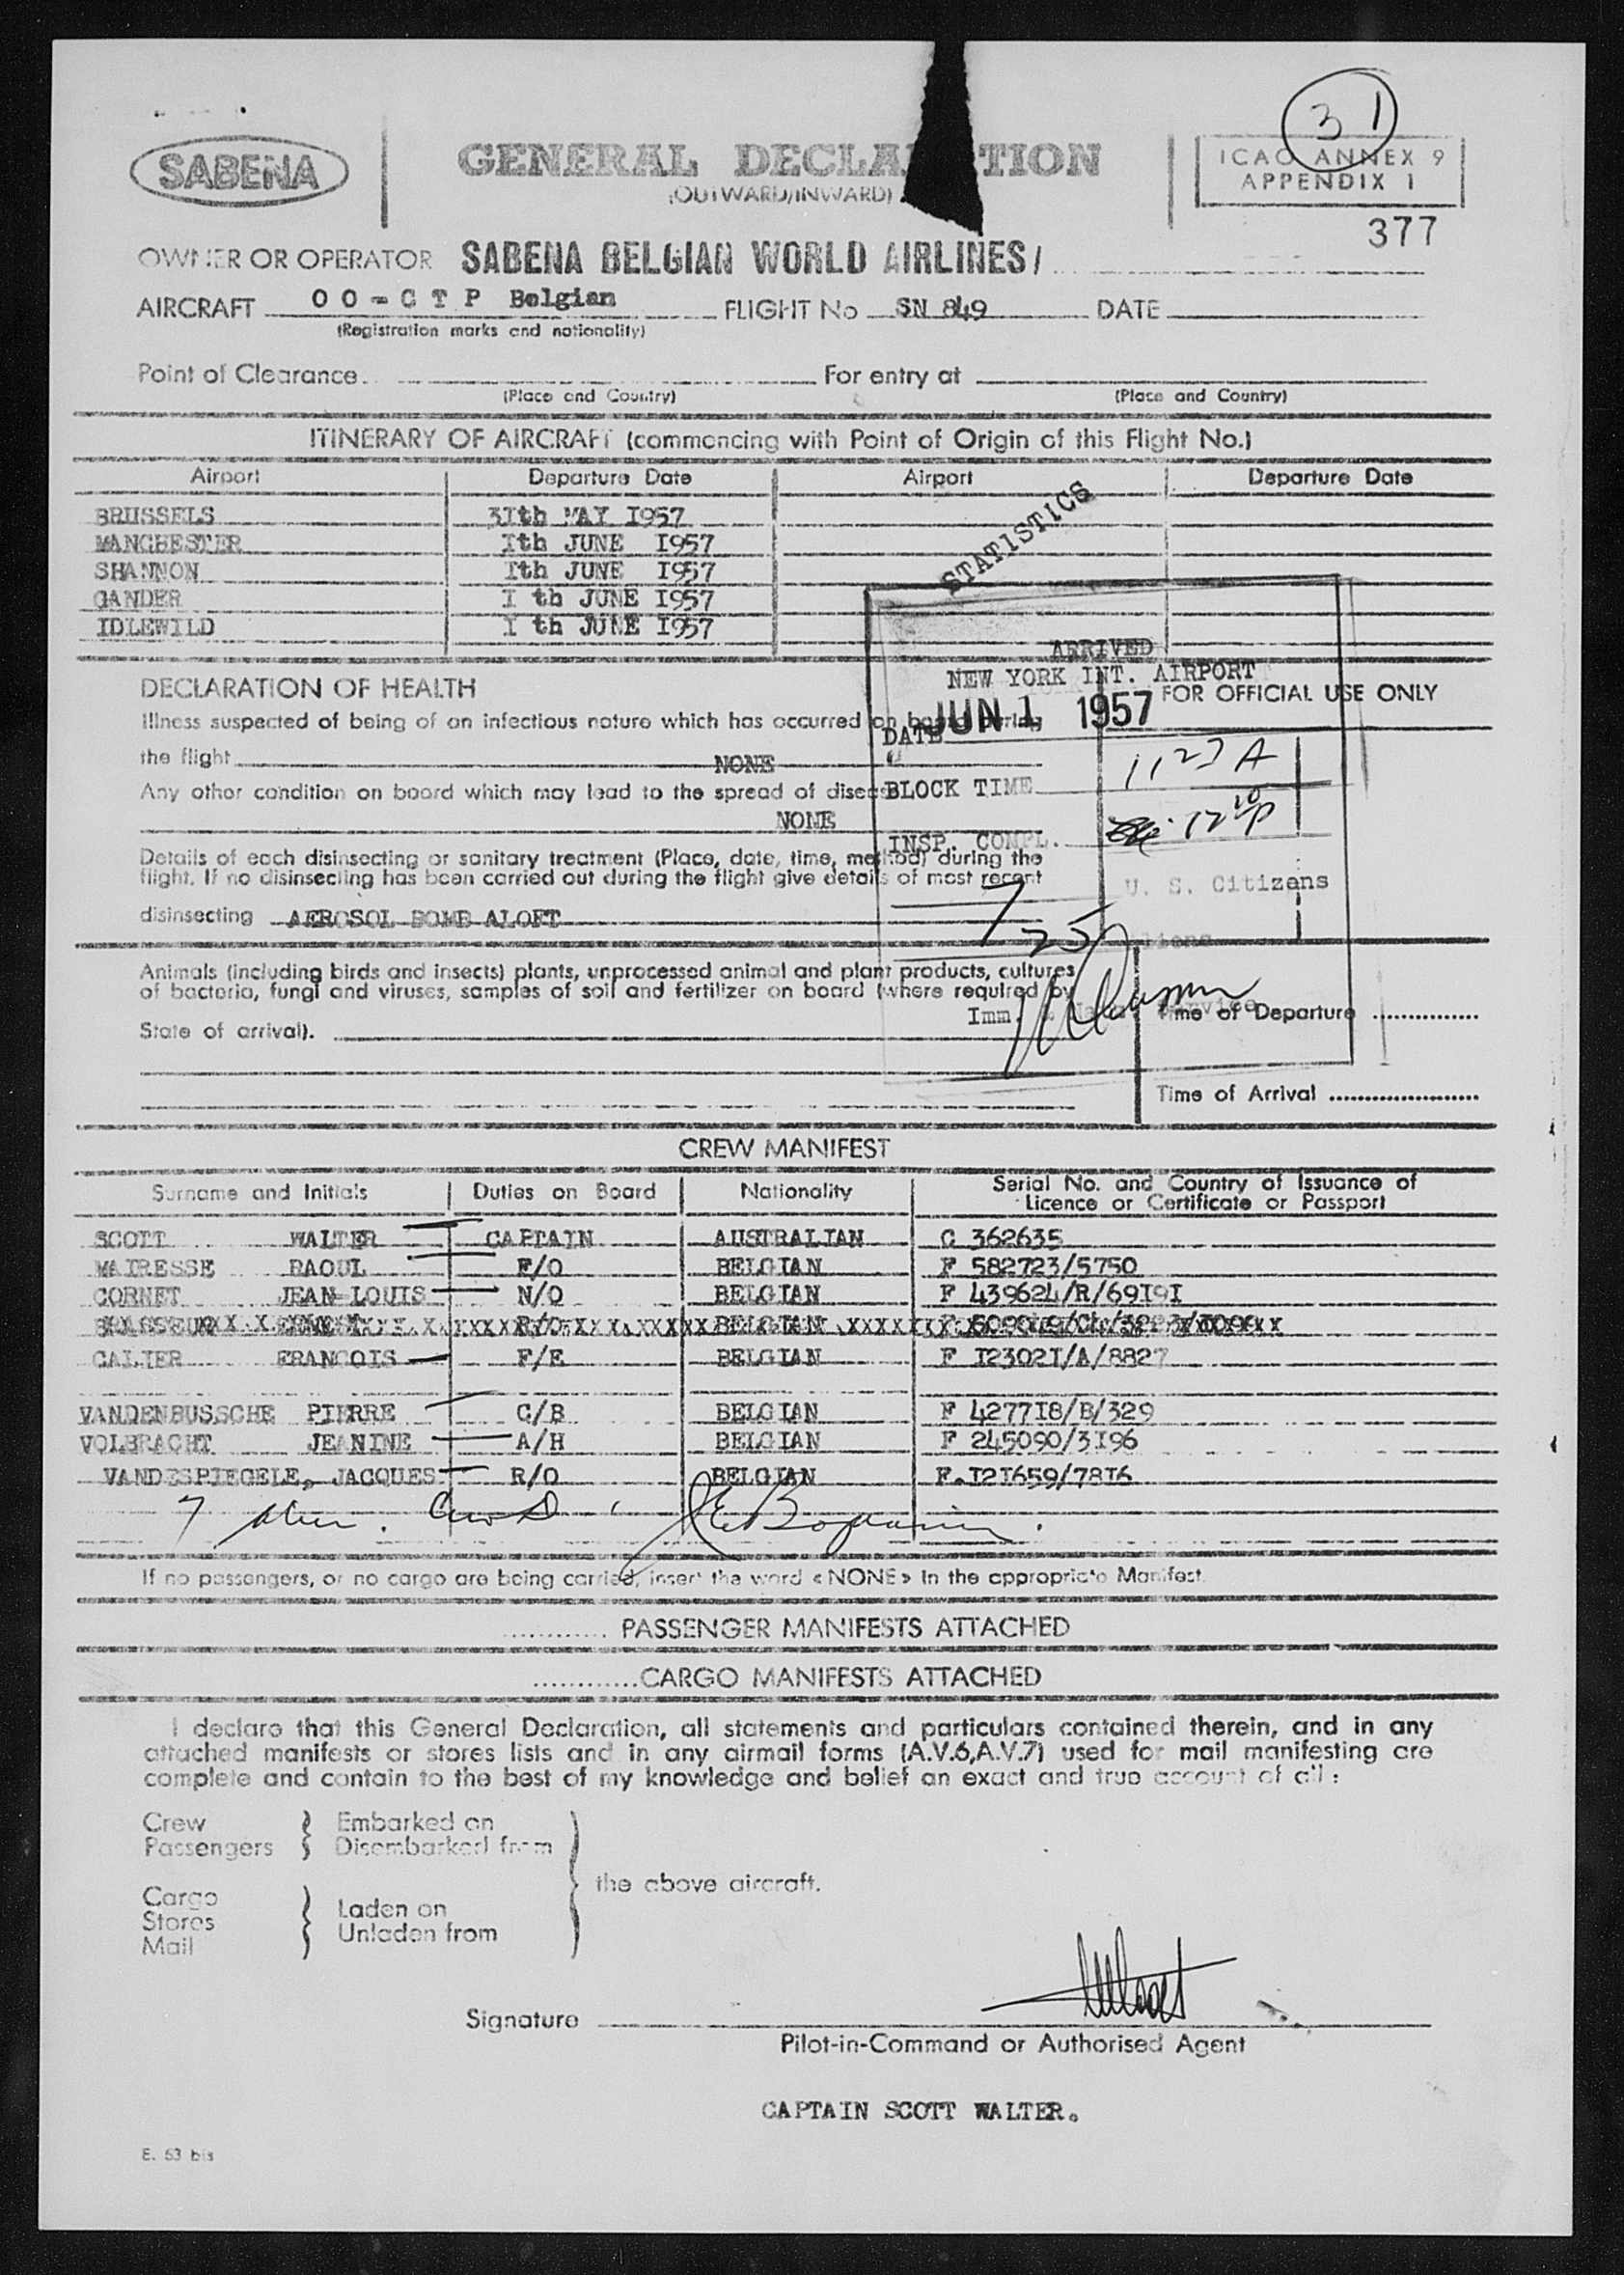 31
SABENA
GENERAL DECLA TION
(OUTWARD/INWARD)
ICAO ANNEX 9
APPENDIX 1
377
OWNER OR OPERATOR SABENA BELGIAN WORLD AIRLINES/
AIRCRAFT OO-CTP Belgian FLIGHT No SN 849 DATE
(Registration marks and nationality)
Point of Clearance For entry at
(Place and Country) (Place and Country)
ITINERARY OF AIRCRAFT (commencing with Point of Origin of this Flight No.)
Airport Departure Date Airport Departure Date
BRUSSELS 3Ith MAY I957
MANCHESTER Ith JUNE I957
SHANNON Ith JUNE I957
GANDER I th JUNE I957
IDLEWILD I th JUNE I957
STATISTICS
ARRIVED
NEW YORK INT. AIRPORT
DATE JUN 1 1957
BLOCK TIME 1127 A
INSP. COMPL. 12 10 P
7 U. S. Citizens
25 Aliens
Imm. & Nat. Service
DECLARATION OF HEALTH
FOR OFFICIAL USE ONLY
Illness suspected of being of an infectious nature which has occurred on board during
the flight NONE
Any other condition on board which may lead to the spread of disease
NONE
Details of each disinsecting or sanitary treatment (Place, date, time, method) during the
flight. If no disinsecting has been carried out during the flight give details of most recent
disinsecting AEROSOL BOMB ALOFT
Animals (including birds and insects) plants, unprocessed animal and plant products, cultures
of bacteria, fungi and viruses, samples of soil and fertilizer on board (where required by
State of arrival).
Time of Departure
Time of Arrival
CREW MANIFEST
Surname and Initials Duties on Board Nationality Serial No. and Country of Issuance of Licence or Certificate or Passport
SCOTT WALTER CAPTAIN AUSTRALIAN C 362635
MAIRESSE RAOUL F/O BELGIAN F 582723/5750
CORNET JEAN-LOUIS N/O BELGIAN F 439624/R/69I9I
R/O BELGIAN
CALIER FRANCOIS F/E BELGIAN F I2302I/A/8827
VANDENBUSSCHE PIERRE C/B BELGIAN F 4277I8/B/329
VOLBRACHT JEANINE A/H BELGIAN F 245090/3I96
VANDESPIEGELE, JACQUES R/O BELGIAN F.I2I659/78I6
7 alien crew
If no passengers, or no cargo are being carried, insert the word «NONE» in the appropriate Manifest.
PASSENGER MANIFESTS ATTACHED
CARGO MANIFESTS ATTACHED
I declare that this General Declaration, all statements and particulars contained therein, and in any
attached manifests or stores lists and in any airmail forms (A.V.6,A.V.7) used for mail manifesting are
complete and contain to the best of my knowledge and belief an exact and true account of all :
Crew Embarked on
Passengers Disembarked from
the above aircraft.
Cargo
Stores
Mail
Laden on
Unladen from
Signature
Pilot-in-Command or Authorised Agent
CAPTAIN SCOTT WALTER.
E. 53 bis